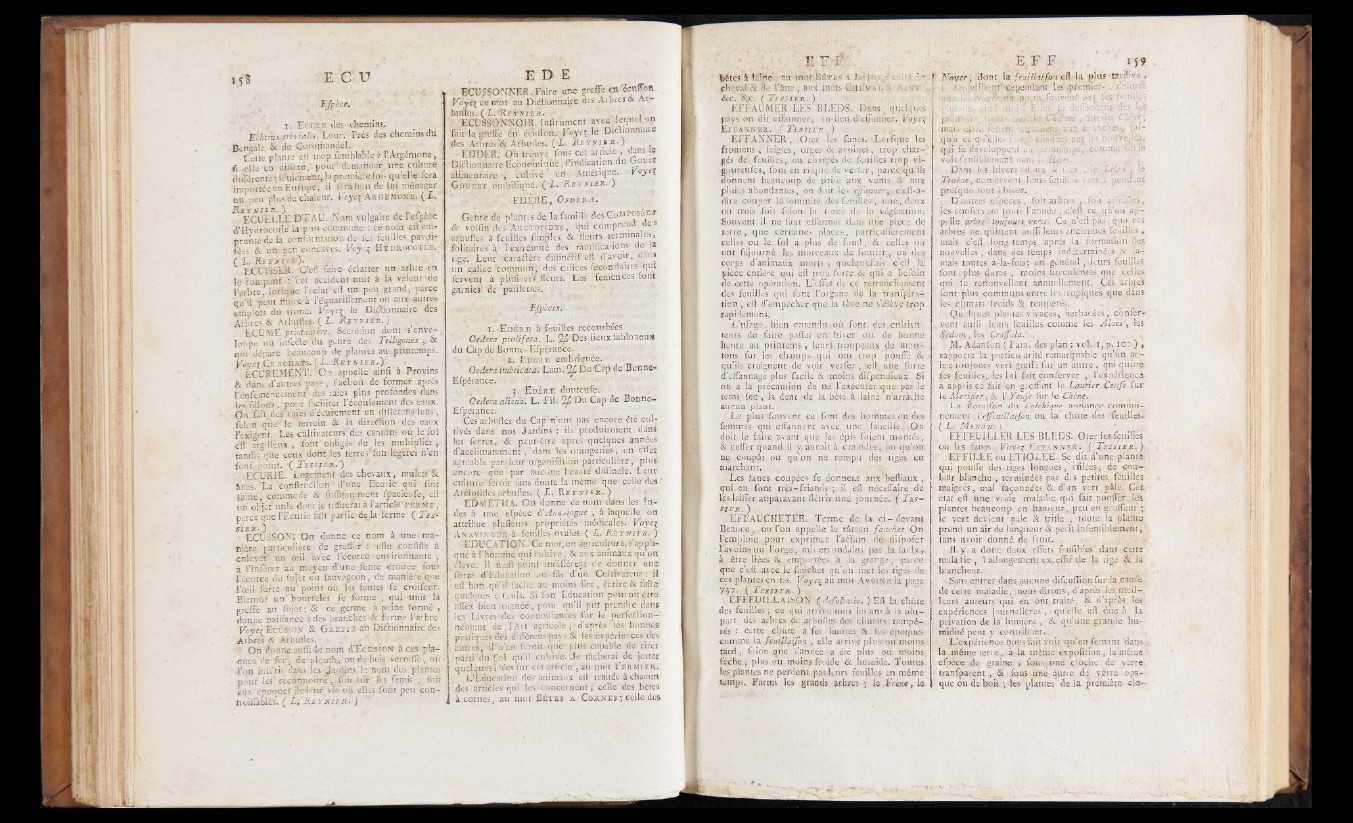 158 E C U
Espèce.
1. ECTRE des chemins.
Près des chemins du
Bengale & de Coromandel.
Cette plante est trop semblable à l'Argémone,
si elle en diffère, pour demander une culture
différente; seulement, la première fois qu'elle sera
importée en Europe, il sera bon de lui ménager
un peu plus de chaleur. Voyez ARGEMONE. (L.
REYNIER.)
ECUELLE D'EAU. Nom vulgaire de l'espèce
d'Hydrocotle la plus commune : ce nom est em-
prunté de la conformation de ses feuilles pavoi-
sées & un peu concaves. Voyez HYDROCOTLE.
(L. REYNIER.)
ECUISSER. C'est faire éclatter un arbre en
le rompant : cet accident nuit à la valeur de
l'arbre, lorsque l'éclat est un peu grand, parce
qu'il peut nuire à l'équarissement ou aux autres
emplois du tronc. Voyez le Dictionnaire des
Arbres & Arbustes. (L. REYNIER.)
ECUME printanière. Sécrétion dont s'enve-
loppe un insecte du genre des Telligones, &
qui dépare beaucoup de plantes au printemps.
Voyez CRACHATS. (L. REYNIER.)
ECUREMENT. On appelle ainsi à Provins
& dans d'autres pays, l'action de former après
l'ensemencement des raies plus profondes dans
les sillons, pour faciliter l'écoulement des eaux.
On fait des raies d'écurement en différens sens,
selon que le terrein & la direction des eaux
l'exigent. Les cultivateurs des cantons où le sol
est argilleux, sont obligés de les multiplier,
tandis que ceux dont les terres son légères n'en
font point. (TESSIER.)
ECURIE. Logement des chevaux, mulets &
ânes. La construction d'une Ecurie qui soit
saine, commode & suffisamment spacieuse, est
un objet utile dont je traiterai à l'article FERME,
parce que l'Ecurie fait partie de la ferme (TES-
SIER.)
ECUSSON. On donne ce nom à une ma-
nière particulière de greffer : elle consiste à
enlever un œil avec l'écorce environnante,
à l'insérer au moyen d'une fente croisée sous
l'écorce du sujet ou sauvageon, de manière que
l'œil sorte au point où les fentes se croisent.
Bientôt un bourrelet se forme, qui unit la
greffe au sujet; & ce germe à peine formé,
donne naissance à des branches & forme l'arbre
Voyez ECUSSON & GREFFE au Dictionnaire des
Arbres & Arbustes.
On donne aussi le nom d'ECUSSON à ces pla-
ques de fer, de plomb, ou de bois vernissé, où
l'on inscrit dans les Jardins le nom des plantes
pour les reconnoître, soit sur les semis, soit
aux époques de leur vie où elles sont peu con-
noissables. (L. REYNIER.)
E D E
ECUSSONNER. Faire une greffe en écusson.
Voyez ce mot au Dictionnaire des Arbres & Ar-
bustes. (L. REYNIER.)
ECUSSONNOIR. Instrument avec lequel on
fait la greffe en écusson. Voyez le Dictionnaire
des Arbres & Arbustes. (L. REYNIER.)
EDDER. On trouve sous cet article, dans le
Dictionnaire Economique, l'indication du Gouet
alimentaire, cultivé en Amérique. Voyez
GOUET ombiliqué. (L. REYNIER.)
EDERE, OEDERA.
Genre de plantes de la famille des COMPOSÉES
& voisin des ARCTOTIDES, qui comprend des
arbustes à feuilles simples & fleurs terminales,
solitaires à l'extrémité des ramifications de la
tige. Leur caractère distinctif est d'avoir, dans
un calice commun, des calices secondaires qui
servent à plusieurs fleurs. Les semences sont
garnies de paillettes.
Espèces.
1. EDÈRE à feuilles recourbées
Oedera prolifera. L. ♃ Des lieux sabloneux
du Cap de Bonne-Espérance.
2. EDERE embriquée.
Oedera imbricata. Lam. ♃ Du Cap de Bonne-
Espérance.
3. EDÈRE douteuse.
Oedera aliena. L. Fil. ♃ Du Cap de Bonne-
Espérance.
Ces arbustes du Cap n'ont pas encore été cul-
tivés dans nos Jardins : ils produiroient dans
les serres, & peut-être après quelques années
d'acclimatement, dans les orangeries, un effet
agréable par leur organisation particulière, plus
encore que par aucune beauté distincte. Leur
culture seroit sans doute la même que celle des
Arctotides arbustes. (L. REYNIER.)
EDMETHA. On donne ce nom dans les In-
des à une espèce d'Anavingue, à laquelle on
attribue plusieurs propriétés médicales. Voyez
ANAVINGUE à feuilles ovales. (L. REYNIER.)
EDUCATION. Ce mot, en agriculture, s'appli-
que à l'homme qui cultive, & aux animaux qu'on
élève. Il n'est point indifférent de donner une
sorte d'Education au fils d'un Cultivateur; il
est bon qu'il sache au moins lire, écrire & faire
quelques calculs. Si son Education pouvoit être
assez bien soignée, pour qu'il pût prendre dans
les Livres des connoissances sur le perfection-
nement de l'Art agricole, d'après les bonnes
pratiques des différens pays & les expériences des
autres, il n'en seroit que plus capable de tirer
parti du sol qu'il cultive. Je tâcherai de jetter
quelques idées sur cet article, au mot FERMIER.
L'Education des animaux est traitée à chacun
des articles qui les concernent; celle des bêtes
à cornes, au mot BÊTES A CORNES; celle des
E F F
bêtes à laine, au mot BÊTES A LAINE;
cheval & de l'âne, aux mots CHEVAL
&c. &c. (TESSIER.)
EFFAUMER LES BLEDS. Dans quelques
pays on dit effanner, au-lieu d'effaumer. Voyez
EFFANNER. (TESSIER.)
EFFANNER, Oter les fanes. Lorsque les
fromens, seigles, orges & avoines, trop char-
gés de feuilles, ou chargés de feuilles trop vi-
goureuses, sont en risque de verser, parce qu'ils
donnent beaucoup de prise aux vents & aux
pluies abondantes, on doit les effanner, c'est-à-
dire couper la sommité des feuilles, une, deux
ou trois fois selon la force de la végétation.
Souvent il ne faut effanner dans une pièce de
terre, que certaines places, particulièrement
celles où le sol a plus de fond, & celles où
ont séjourné les morceaux de fumier, ou des
corps d'animaux morts; quelquefois c'est la
pièce entière qui est trop forte & qui a besoin
de cette opération. L'effet de ce retranchement
des feuilles qui sont l'organe de la transpira-
tion, est d'empêcher que la sève ne s'élève trop
rapidement.
L'usage, bien entendu où sont des cultiva-
teurs de faire passer en hiver ou de bonne
heure au printems, leurs troupeaux de mou-
tons sur les champs qui ont trop poussé &
qu'ils craignent de voir verser, est une sorte
d'effannage plus facile & moins dispendieux. Si
on a la précaution de ne l'exécuter que par le
tems sec, la dent de la bête à laine n'arrache
aucun plant.
Le plus souvent ce sont des hommes ou des
femmes qui effannent avec une faucille. On
doit le faire avant que les épis soient montés,
& cesser quand il y auroit à craindre, ou qu'on
ne coupât ou qu'on ne rompît des tiges en
marchant.
Les fanes coupées se donnent aux bestiaux,
qui en sont très-friands; il est nécessaire de
les laisser auparavant flétrir une journée. (TES-
SIER.)
EFFAUCHETER. Terme de la ci-devant
Beauce, où l'on appelle le râteau fauchet. On
l'emploie pour exprimer l'action de disposer
l'avoine ou l'orge, mis en ondains par la faulx,
à être liées & emportées à la grange, parce
que c'est avec le fauchet qu'on met les tiges de
ces plantes en tas. Voyez au mot AVOINE la page
757. (TESSIER.)
EFFEUILLAISON (defoliatio.) Est la chûte
des feuilles; ce qui arrive tous les ans à la plu-
part des arbres & arbustes des climats tempé-
rés : cette chûte a ses limites & ses époques
comme la feuillaison, elle arrive plus ou moins
tard, selon que l'année a été plus ou moins
sèche, plus ou moins froide & humide. Toutes
les plantes ne perdent pas leurs feuilles en même
temps. Parmi les grands arbres; le Frêne, le
E F F 159
Noyer, dont la feuillaison est la plus tardive,
s'effeuillent cependant les premiers;
qui se développent
voit sensiblement dans
Dans les hivers doux
Troëne, conservent leurs feuilles vertes pendant
presque tout l'hiver.
D'autres espèces, soit arbres, soit arbustes,
les conservent toute l'année, c'est ce qu'on ap-
pelle arbres toujours verts. Ce n'est pas que ces
arbres ne quittent aussi leurs anciennes feuilles,
mais c'est long-temps après la formation des
nouvelles, dans des temps indéterminés & ja-
mais toutes à-la-fois; en général, leurs feuilles
sont plus dures, moins succulentes que celles
qui se renouvellent annuellement. Ces arbres
sont plus communs entre les tropiques que dans
les climats froids & tempérés.
Quelques plantes vivaces, herbacées, conser-
vent aussi leurs feuilles comme les Aloës, les
Sedum, les Crassula.
M. Adanson (Fam. des plan : vol. 1, p. 109),
rapporte la particularité remarquable qu'un ar-
bre toujours vert greffé sur un autre, qui quitte
ses feuilles, les lui fait conserver, l'expérience
a appris ce fait en greffant le Laurier Cerise sur
le Merisier, & l'Yeuse sur le Chêne.
La floraison du Colchique annonce commu-
nément l'effeuillaison ou la chûte des feuilles.
(L. MENON.)
EFFEUILLER LES BLEDS. Oter les feuilles
ou les fanes. Voyez EFFANNER. (TESSIER.)
EFFILÉE ou ETIOLÉE. Se dit d'une plante
qui pousse des tiges longues, effilées, de cou-
leur blanche, terminées par des petites feuilles
maigres, mal façonnées & d'un vert pâle. Cet
état est une vraie maladie qui fait pousser les
plantes beaucoup en hauteur, peu en grosseur;
le vert devient pale & triste, toute la plante
prend un air de langueur & périt insensiblement,
sans avoir donné de fruit.
Il y a donc deux effets sensibles dans cette
maladie, l'allongement excessif de la tige & la
blancheur.
Sans entrer dans aucune discussion sur la cause
de cette maladie, nous dirons, d'après les meil-
leurs auteurs qui en ont traité, & d'après les
expériences journalières, qu'elle est due à la
privation de la lumière, & qu'une grande hu-
midité peut y contribuer.
L'expérience nous fait voir qu'en semant dans
la même terre, à la même exposition, la même
espèce de graine, sous une cloche de verre
transparent, & sous une autre de verre opa-
que ou de bois; les plantes de la première clo-